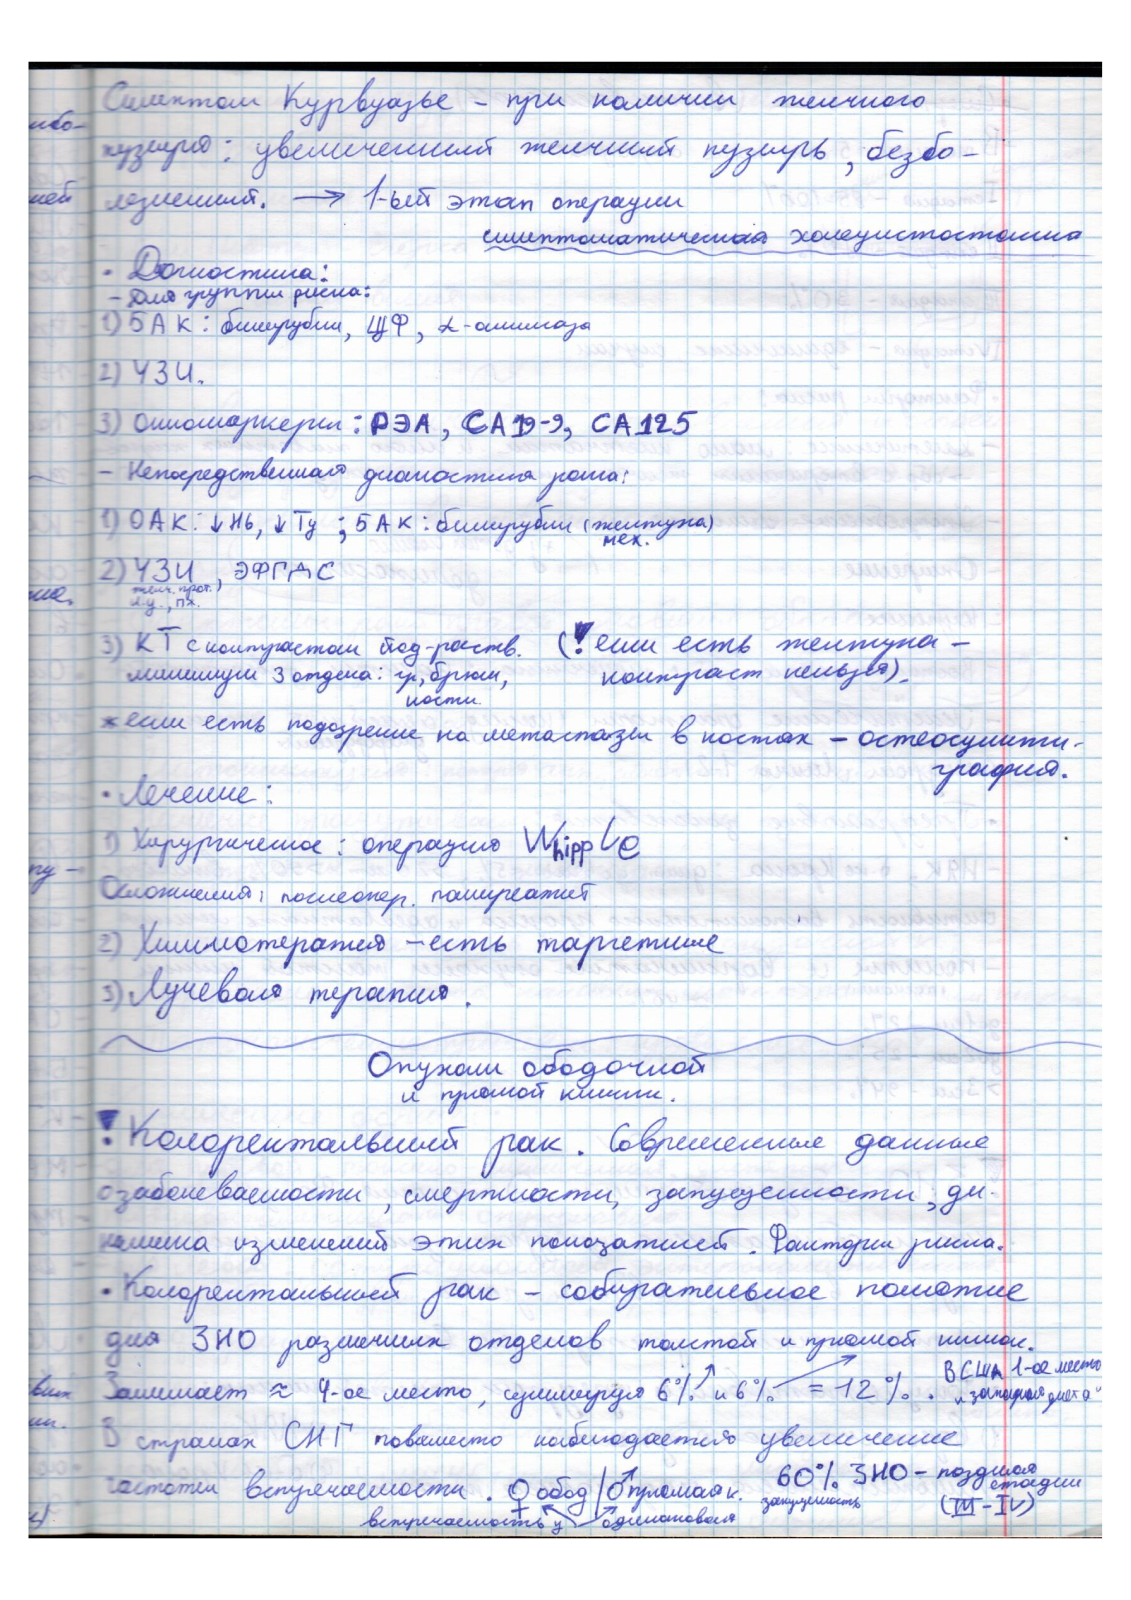 Симптом Курвуазье – при наличии желчного
пузыря: увеличенный желчный пузырь, безбо-
лезненный. → 1-ый этап операции
симптоматическая холецистостомия
• Диагностика:
– Для группы риска:
1) БАК: билирубин, ЩФ, α-амилаза
2) УЗИ.
3) Онкомаркеры: РЭА, СА19-9, СА125
– Непосредственная диагностика рака:
1) ОАК: ↓Hb, ↓Tц ; БАК: билирубин (желтуха)
мех.
2) УЗИ , ЭФГДС
желч. прот.)
л.у., пж.
3) КТ с контрастом йод-раств. (! если есть желтуха –
минимум 3 отдела: гр, брюш, контраст нельзя).
кости.
* если есть подозрение на метастазы в костях – остеосцинти-
графия.
• Лечение:
1) Хирургическое: операция Whipple
Осложнения: послеопер. панкреатит
2) Химиотерапия – есть таргетные
3) Лучевая терапия.
Опухоли ободочной
и прямой кишки.
! Колоректальный рак. Современные данные
озаболеваемости, смертности, запущенности, ди-
намика изменений этих показателей. Факторы риска.
• Колоректальный рак – собирательное понятие
для ЗНО различных отделов толстой и прямой кишок.
Занимает ≈ 4-ое место, суммируя 6% и 6% = 12%. В США 1-ое место
"западная диета"
В странах СНГ повсеместо наблюдается увеличение
частоты встречаемости. ♀ обод / ♂ прямая к. 60% ЗНО – поздняя
стадии
запущенность (III – IV)
встречаемость у одинаковая